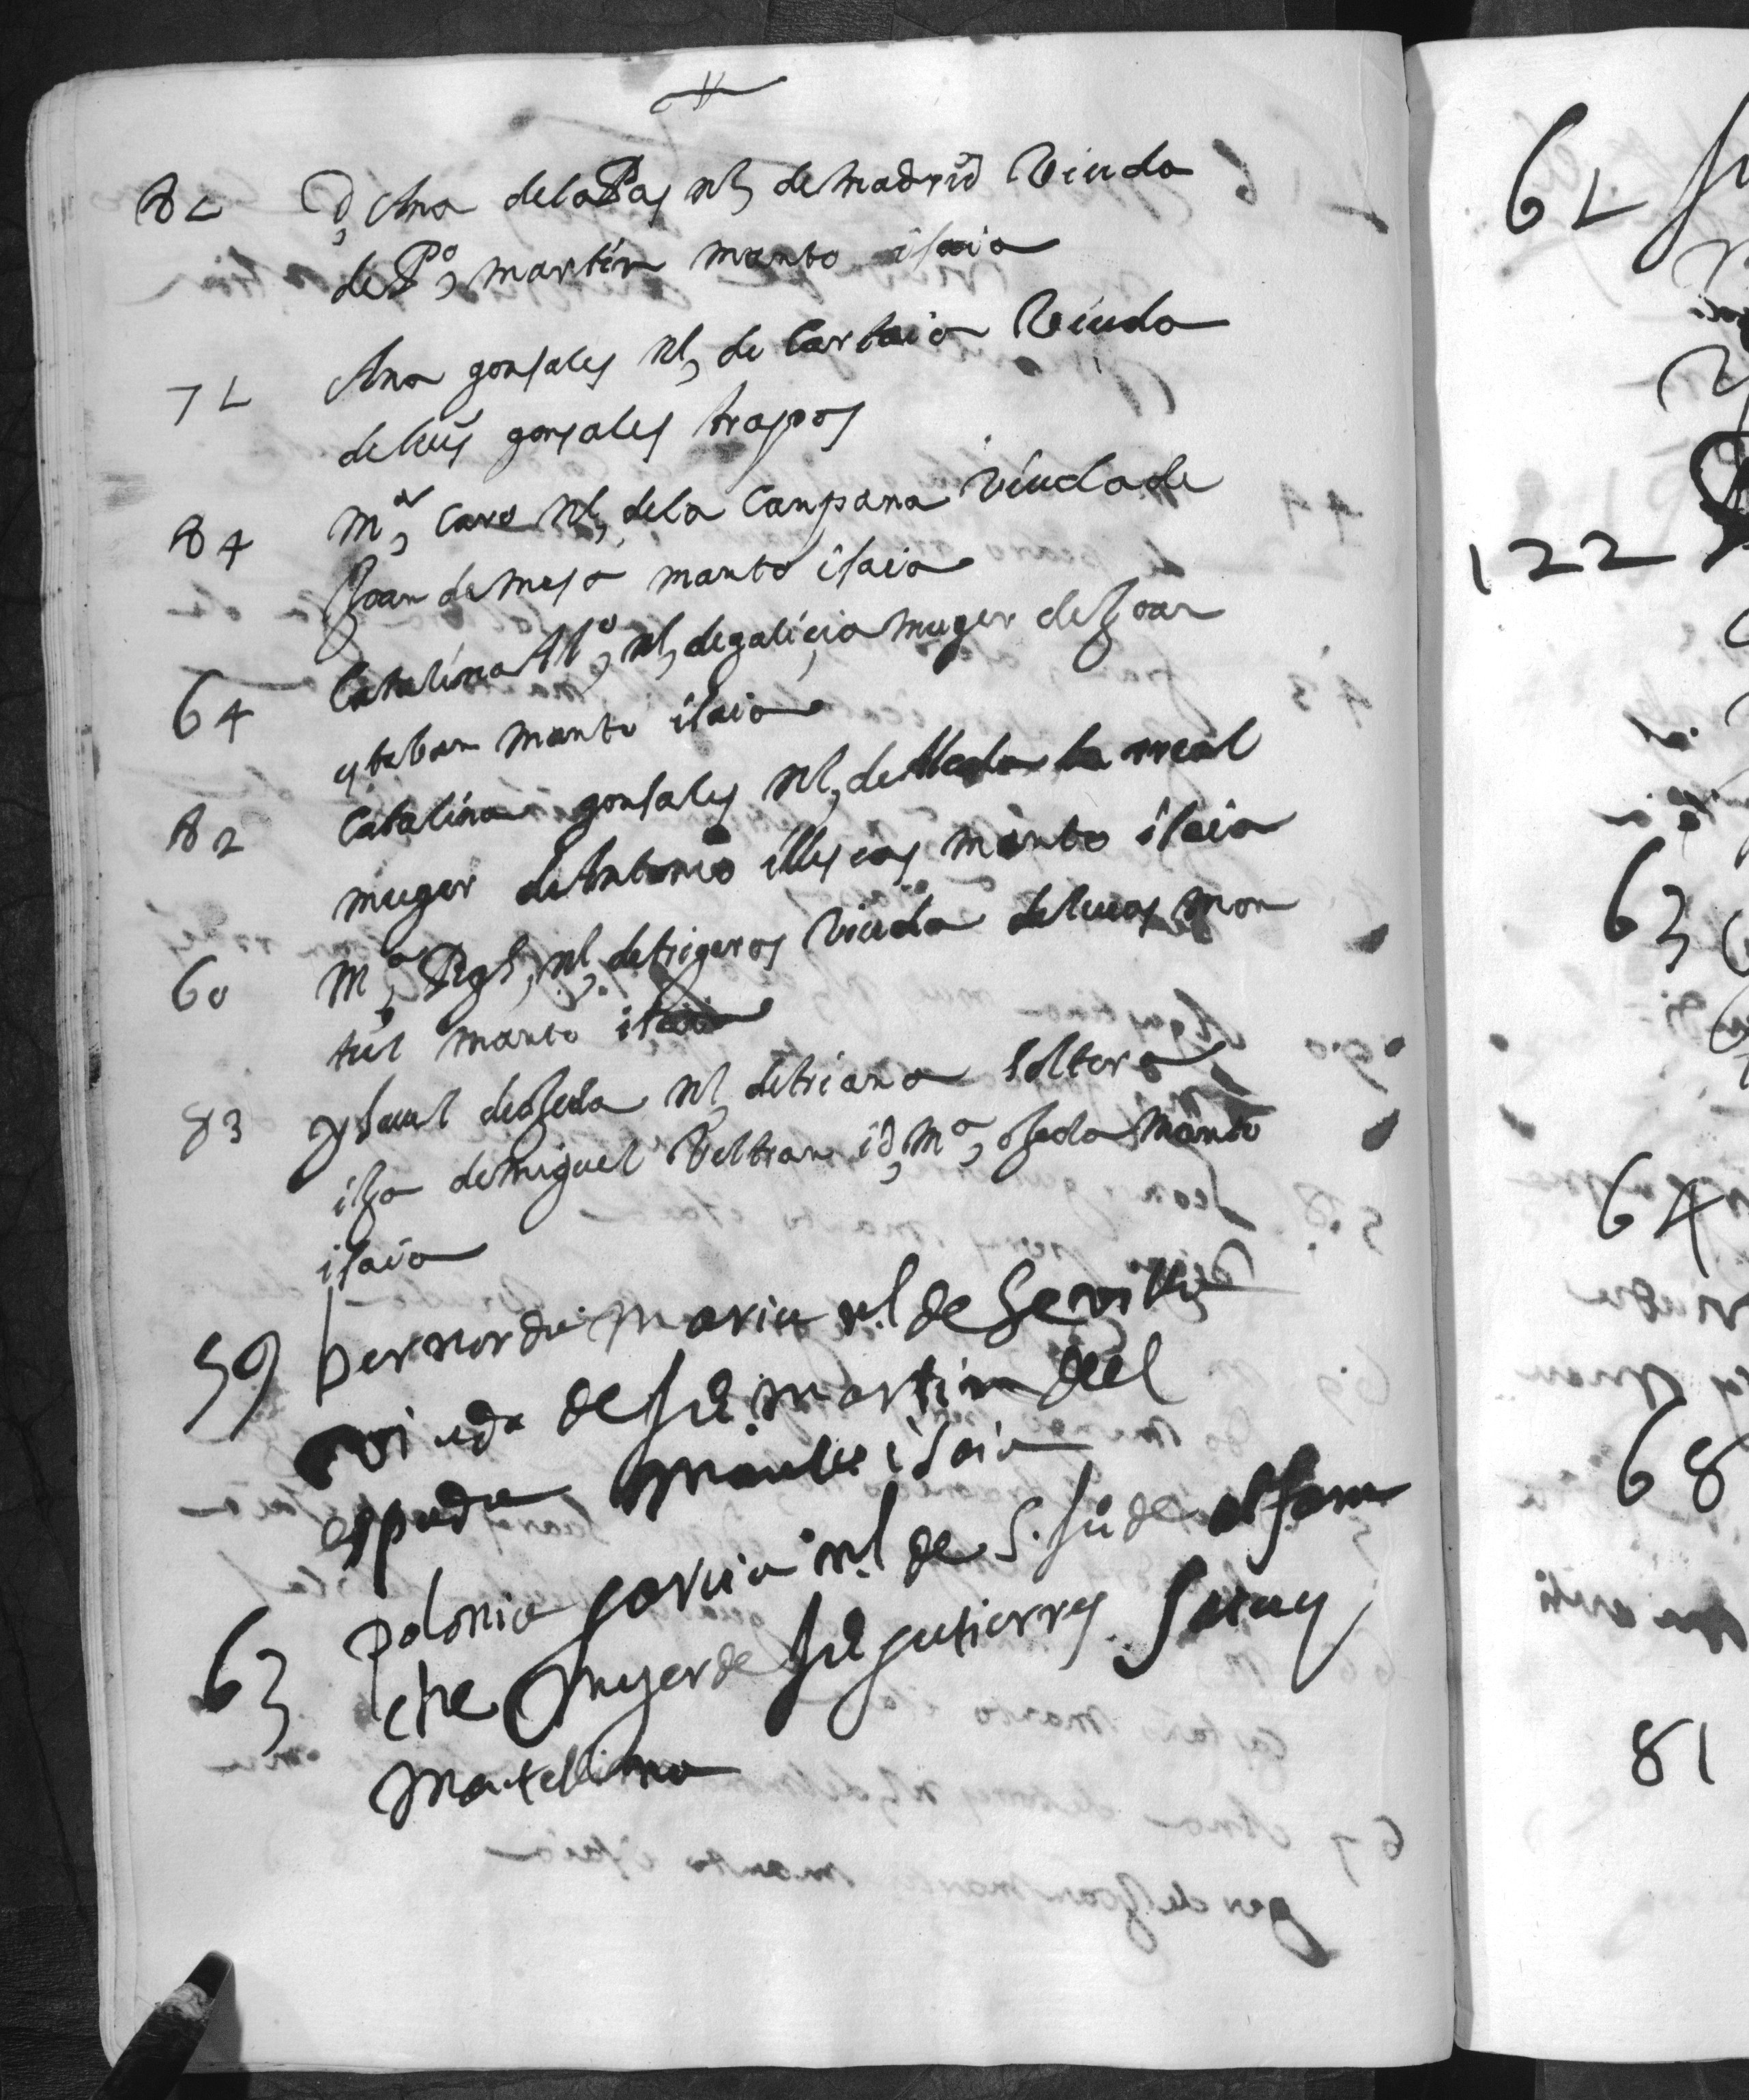 8L D, Ana de la Pas nl, de madrid Viuda
de Po, martin manto isaia
7L Ana gonsales nl, de Cartaia Viuda
de luis gonsales trapos
84 Ma, Caro nl, de la Canpana Viuda de
Joan de mesa manto isaia
64 Catalina Alo, nl, de galicia muger de Joan
esteban manto isaia
82 Catalina gonsales nl, de la real
muger de Antonio illescas manto isaia
60 Ma, nl, de trigeros Viuda de lucas mon
tiel manto isaia
83 ysauel de oJeda nl, de triana soltera
iJa de miguel Veltran i d, Ma, oJeda manto
isaia
59 bernarda maria nl de Sevilla
viuda de Ju martin del
espada manto isaia
63 polonia garcia nl de S. Ju de alfara
che muger de Ju gutierres saia y
mantellina
6L
122
63
64
68
81